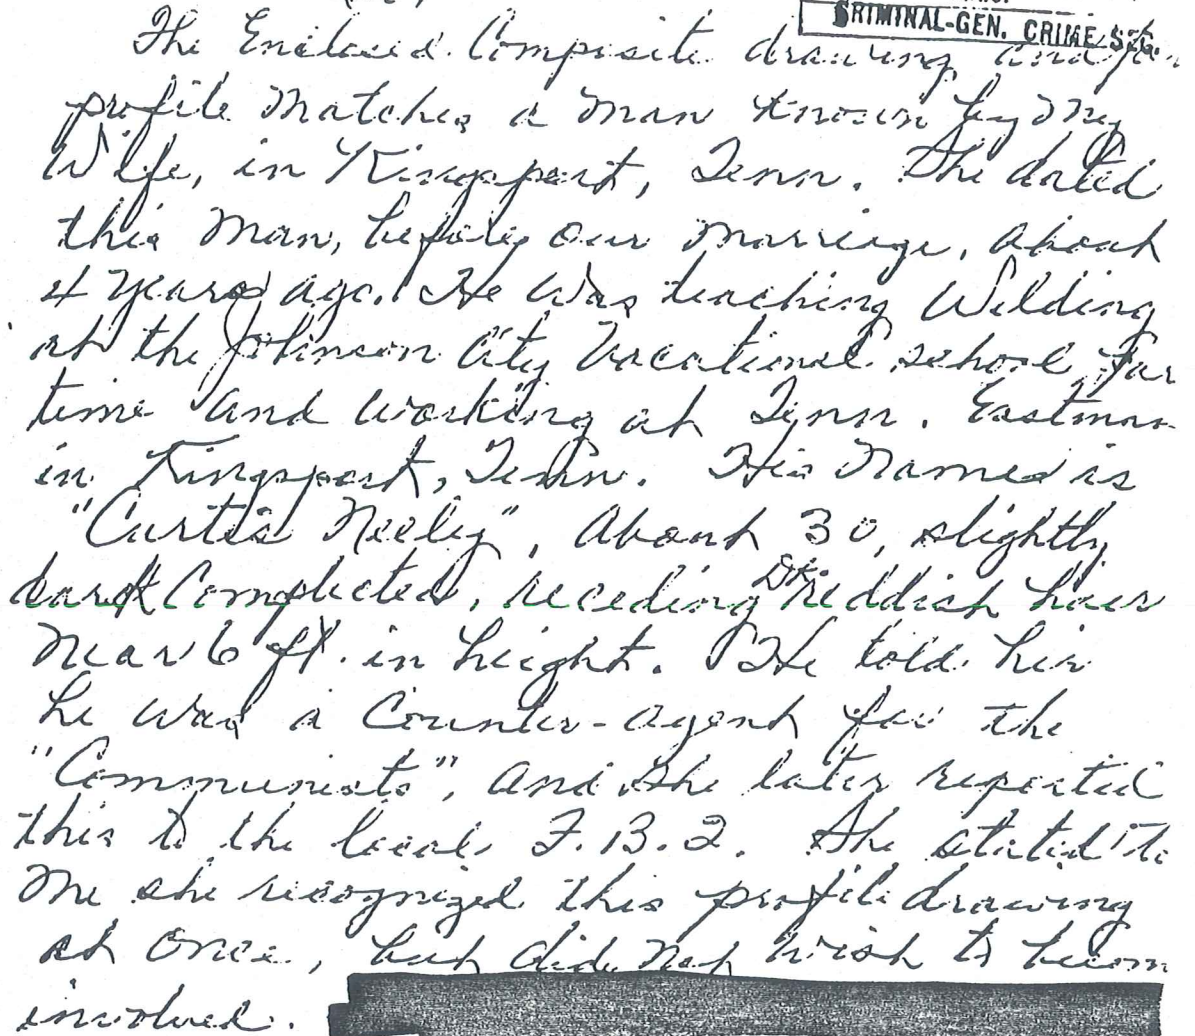 CRIMINAL-GEN. CRIME SEC.
The Enclosed Composite drawing and
profile Matches a man known by My
Wife, in Kingsport, Tenn. She dated
this Man, before our marriage, about
4 years ago. He was teaching Welding
at the Johnson City Vocational school for
time and working at Tenn. Eastman
in Kingsport, Tenn. His Name is
"Curtis Neely", About 30, slightly
dark Complected, receding Dk Reddish hair
Near 6 ft. in height. He told her
he was a Counter-agent for the
"Communists", and she later reported
this to the local F.B.I. She stated to
Me she recognized this profile drawing
at once, but did Not wish to becom
involved.